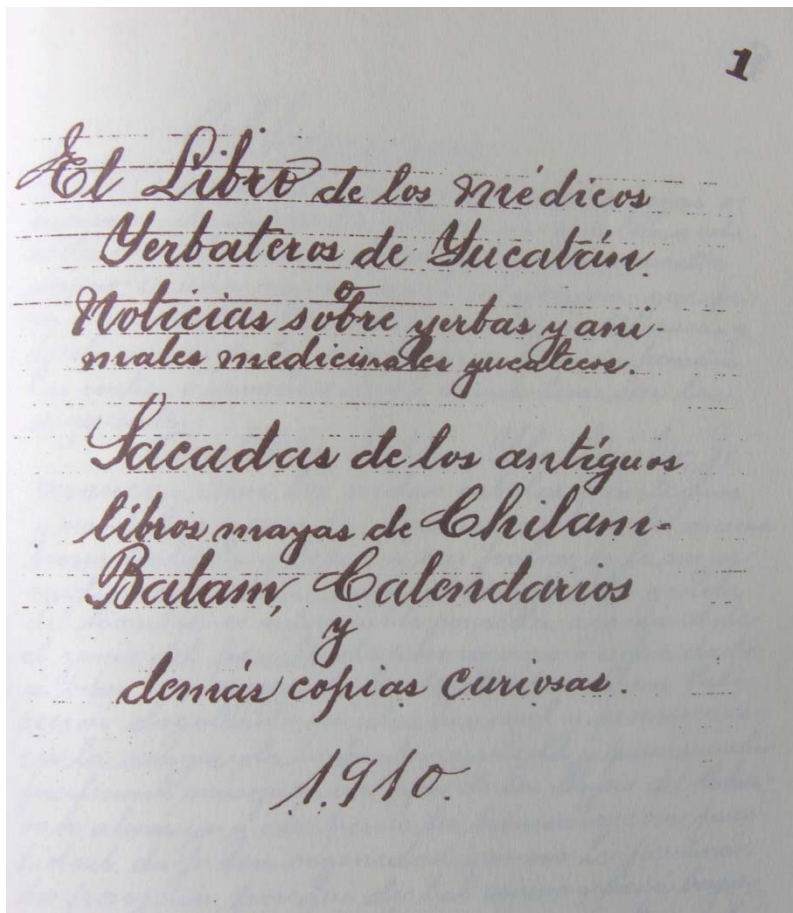 1
El Libro de los Médicos
Yerbateros de Yucatán.
o
Noticias sobre yerbas y ani-
males medicinales yucatecos.
Sacadas de los antíguos
libros mayas de Chilam-
Balam, Calendarios
y
demás copias curiosas.
1910.